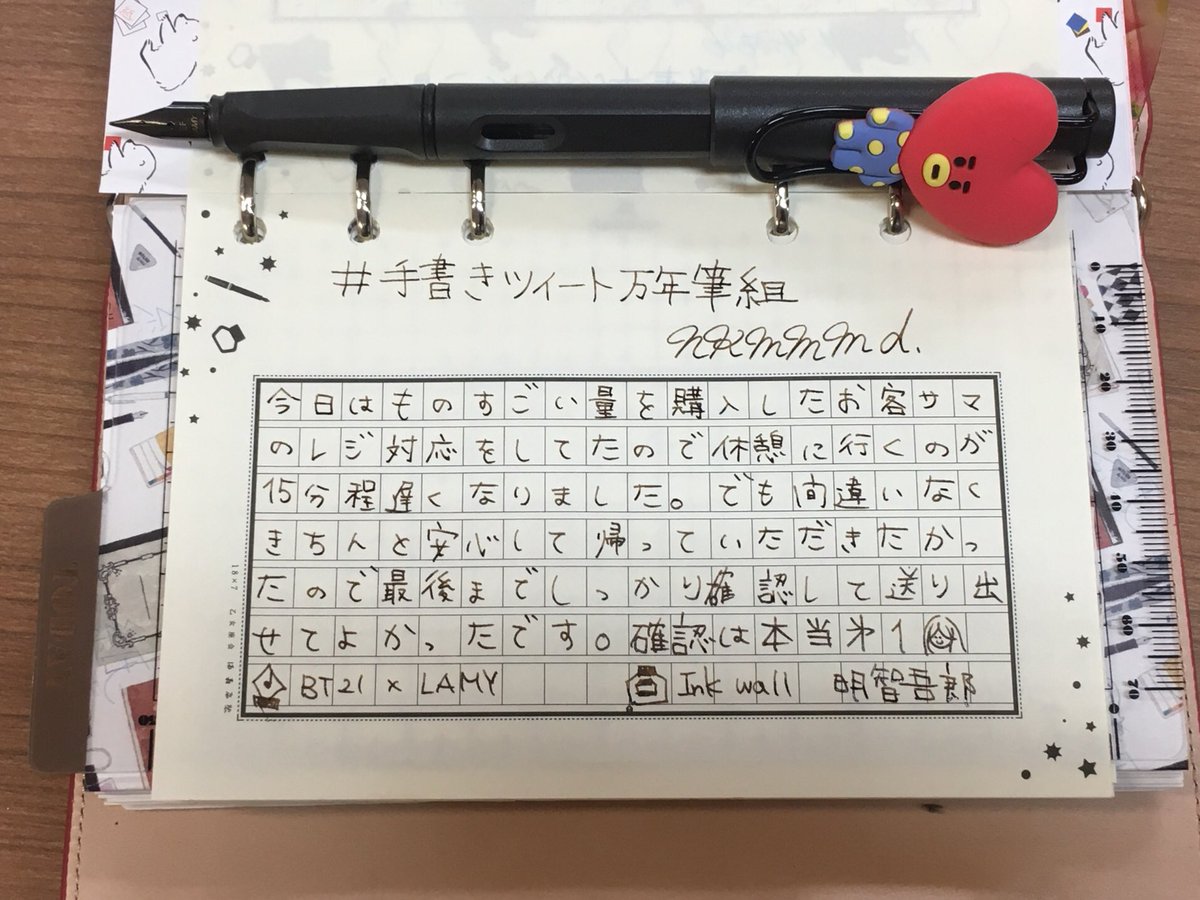 #手書きツイート万年筆組
nkmmmd.
今日はものすごい量を購入したお客サマ
のレジ対応をしてたので休憩に行くのが
15分程遅くなりました。でも間違いなく
きちんと安心して帰っていただきたかっ
たので最後までしっかり確認して送り出
せてよかったです。確認は本当オ1
BT21 × LAMY Ink wall 明智吾郎
18×7
10
20
30
40
50
60
70